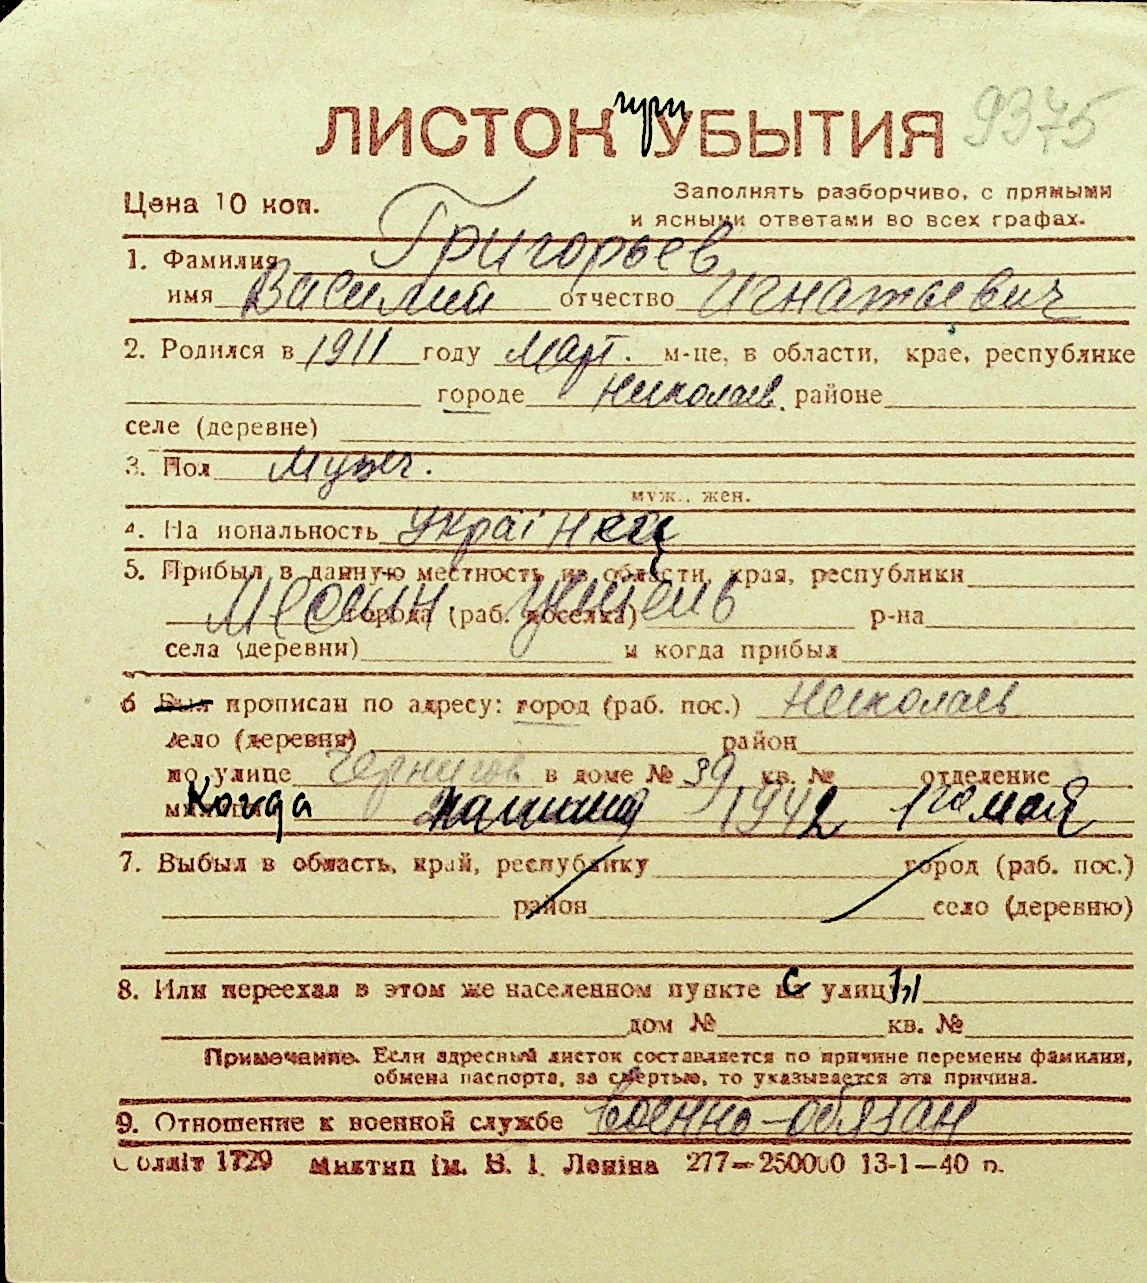 ЛИСТОК при УБЫТИЯ 9375
Цена 10 коп. Заполнять разборчиво, с прямыми
и ясными ответами во всех графах.
1. Фамилия Григорьев
имя Василий отчество Игнатьевич
2. Родился в 1911 году Март. м-це, в области, крае, республике
городе Николаев. районе
селе (деревне)
3. Пол Мужч.
муж., жен.
4. На иональность Українец
5. Прибыл в данную местность из области, края, республики
города (раб. поселка) р-на
села (деревни) и когда прибыл
6 Был прописан по адресу: город (раб. пос.) Николаев
село (деревня) район
по улице Чернигов в доме № 39 кв. № отделение
Когда 1942 1го мая
7. Выбыл в область, край, республику город (раб. пос.)
район село (деревню)
8. Или переехал в этом же населенном пункте с улицы
дом № кв. №
Примечание. Если адресный листок составляется по причине перемены фамилии,
обмена паспорта, за смертью, то указывается эта причина.
9. Отношение к военной службе Военно-обязан
Облліт 1729 Миктип ім. В. І. Леніна 277—250000 13-1—40 р.